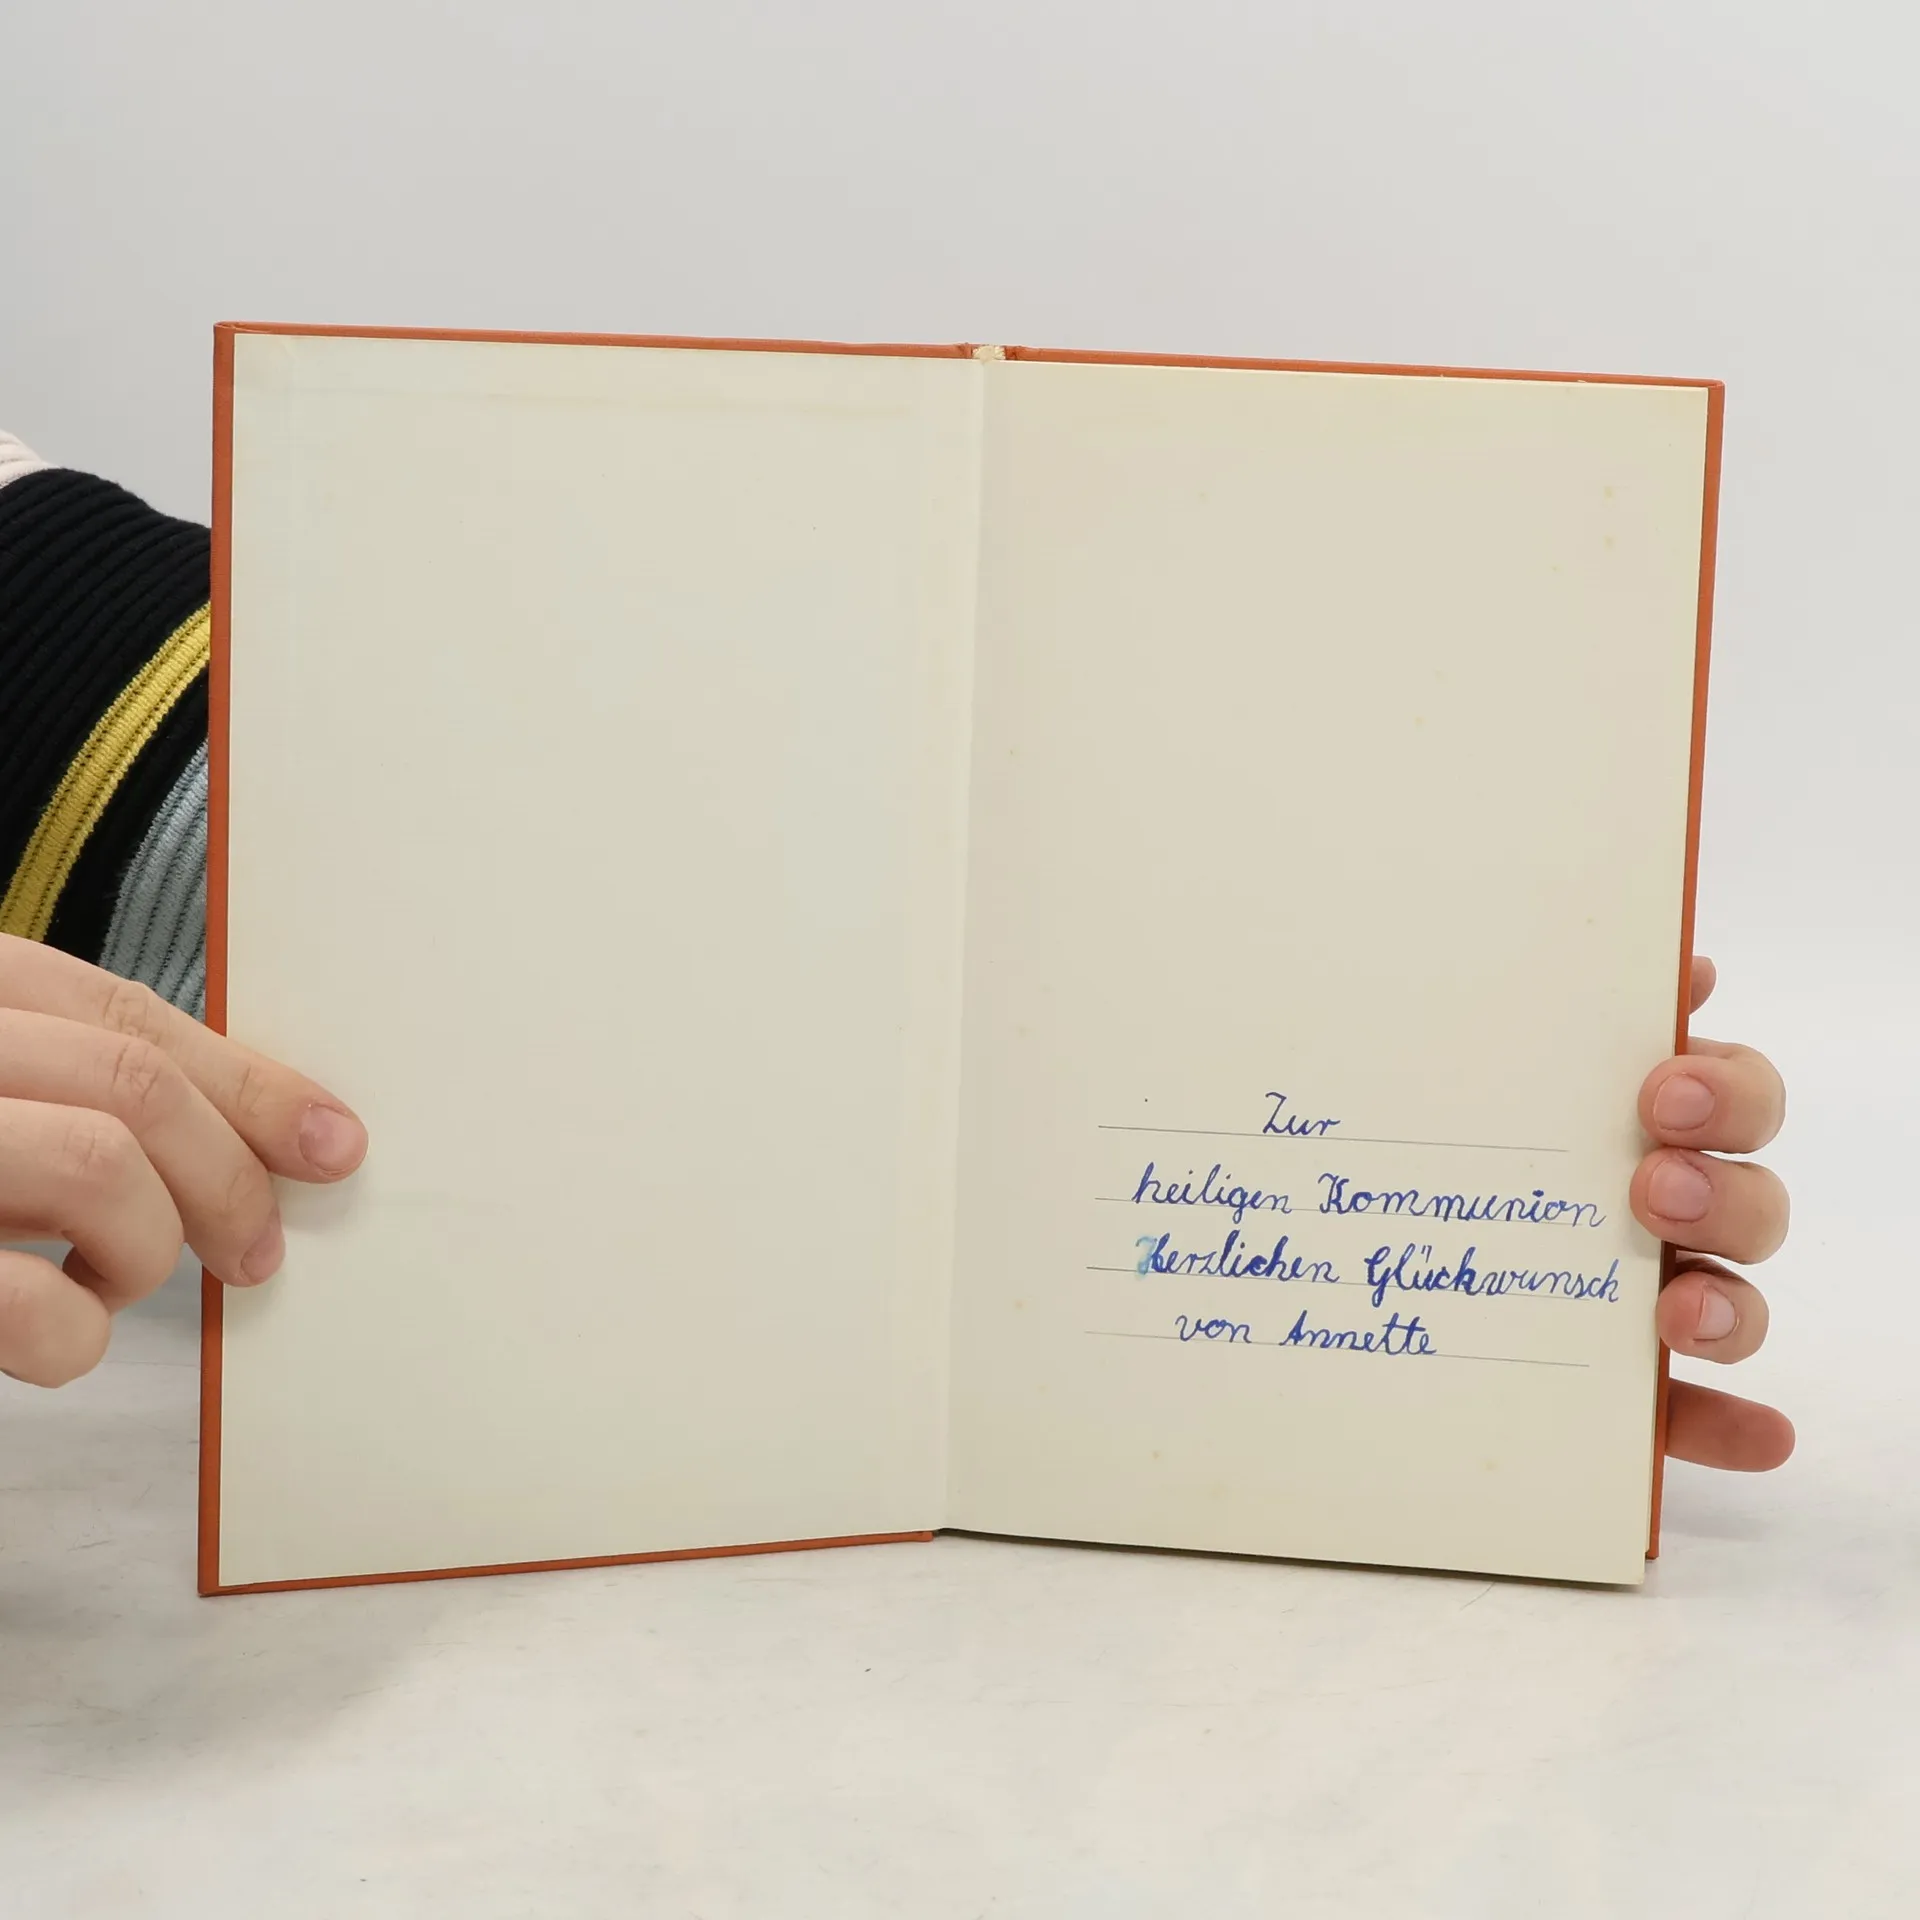 Zur
heiligen Kommunion
Herzlichen Glückwunsch
von Annette